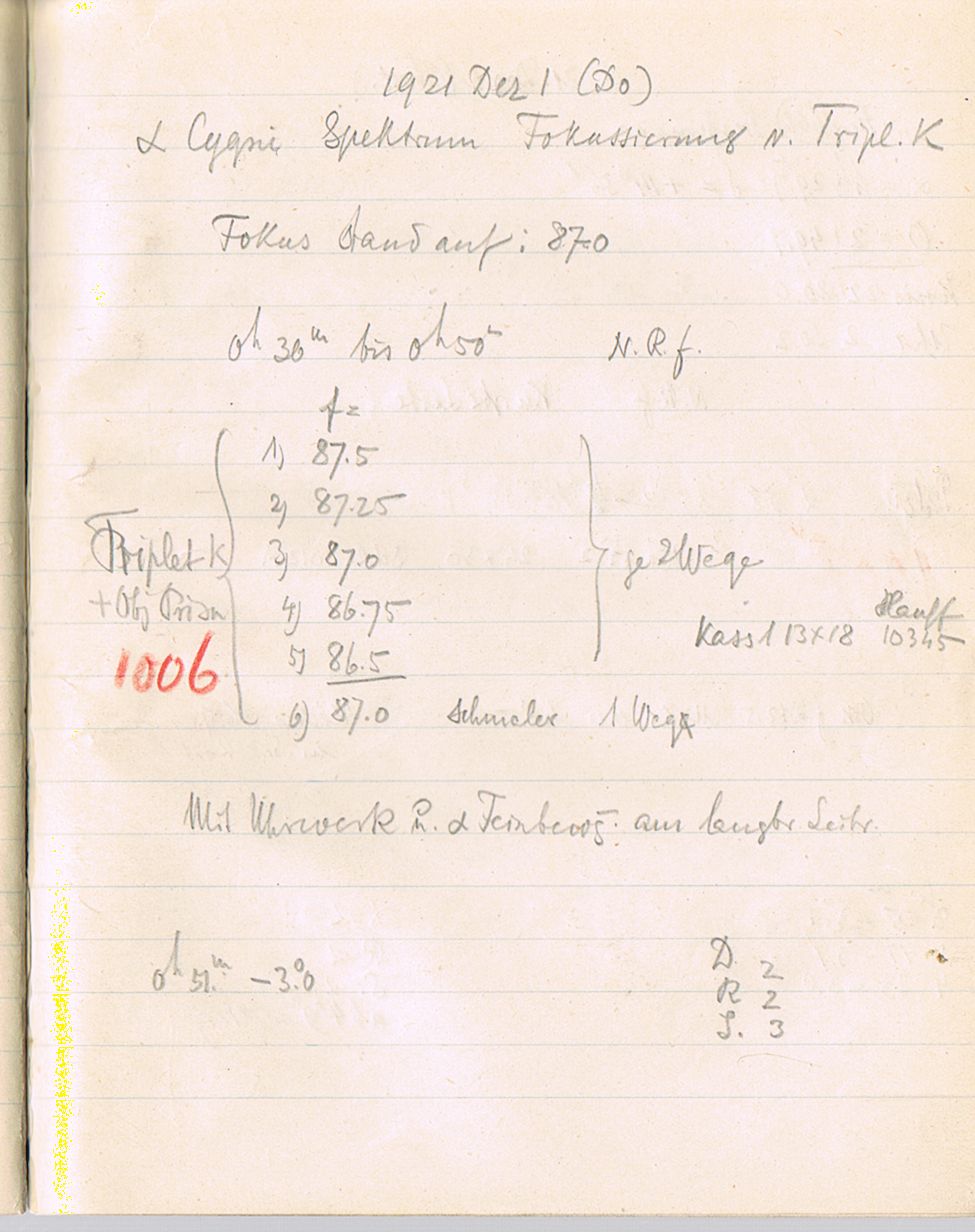 1921 Dez 1 (Do)
α Cygni Spektrum Fokussierung v. Tripl. K
Fokus stand auf: 87.0
0h 30m bis 0h 50m N. R. f.
f =
1) 87.5
2) 87.25
Triplet K 3) 87.0 je 2 Wege
+ Obj Prism 4) 86.75 Hauff
Kass 1 13×18 10345
1006 5) 86.5
6) 87.0 schmaler 1 Weg
Mit Uhrwerk u. α Feinbeweg. am langbr. Leitr.
0h 51m -3°.0
D 2
R 2
S. 3